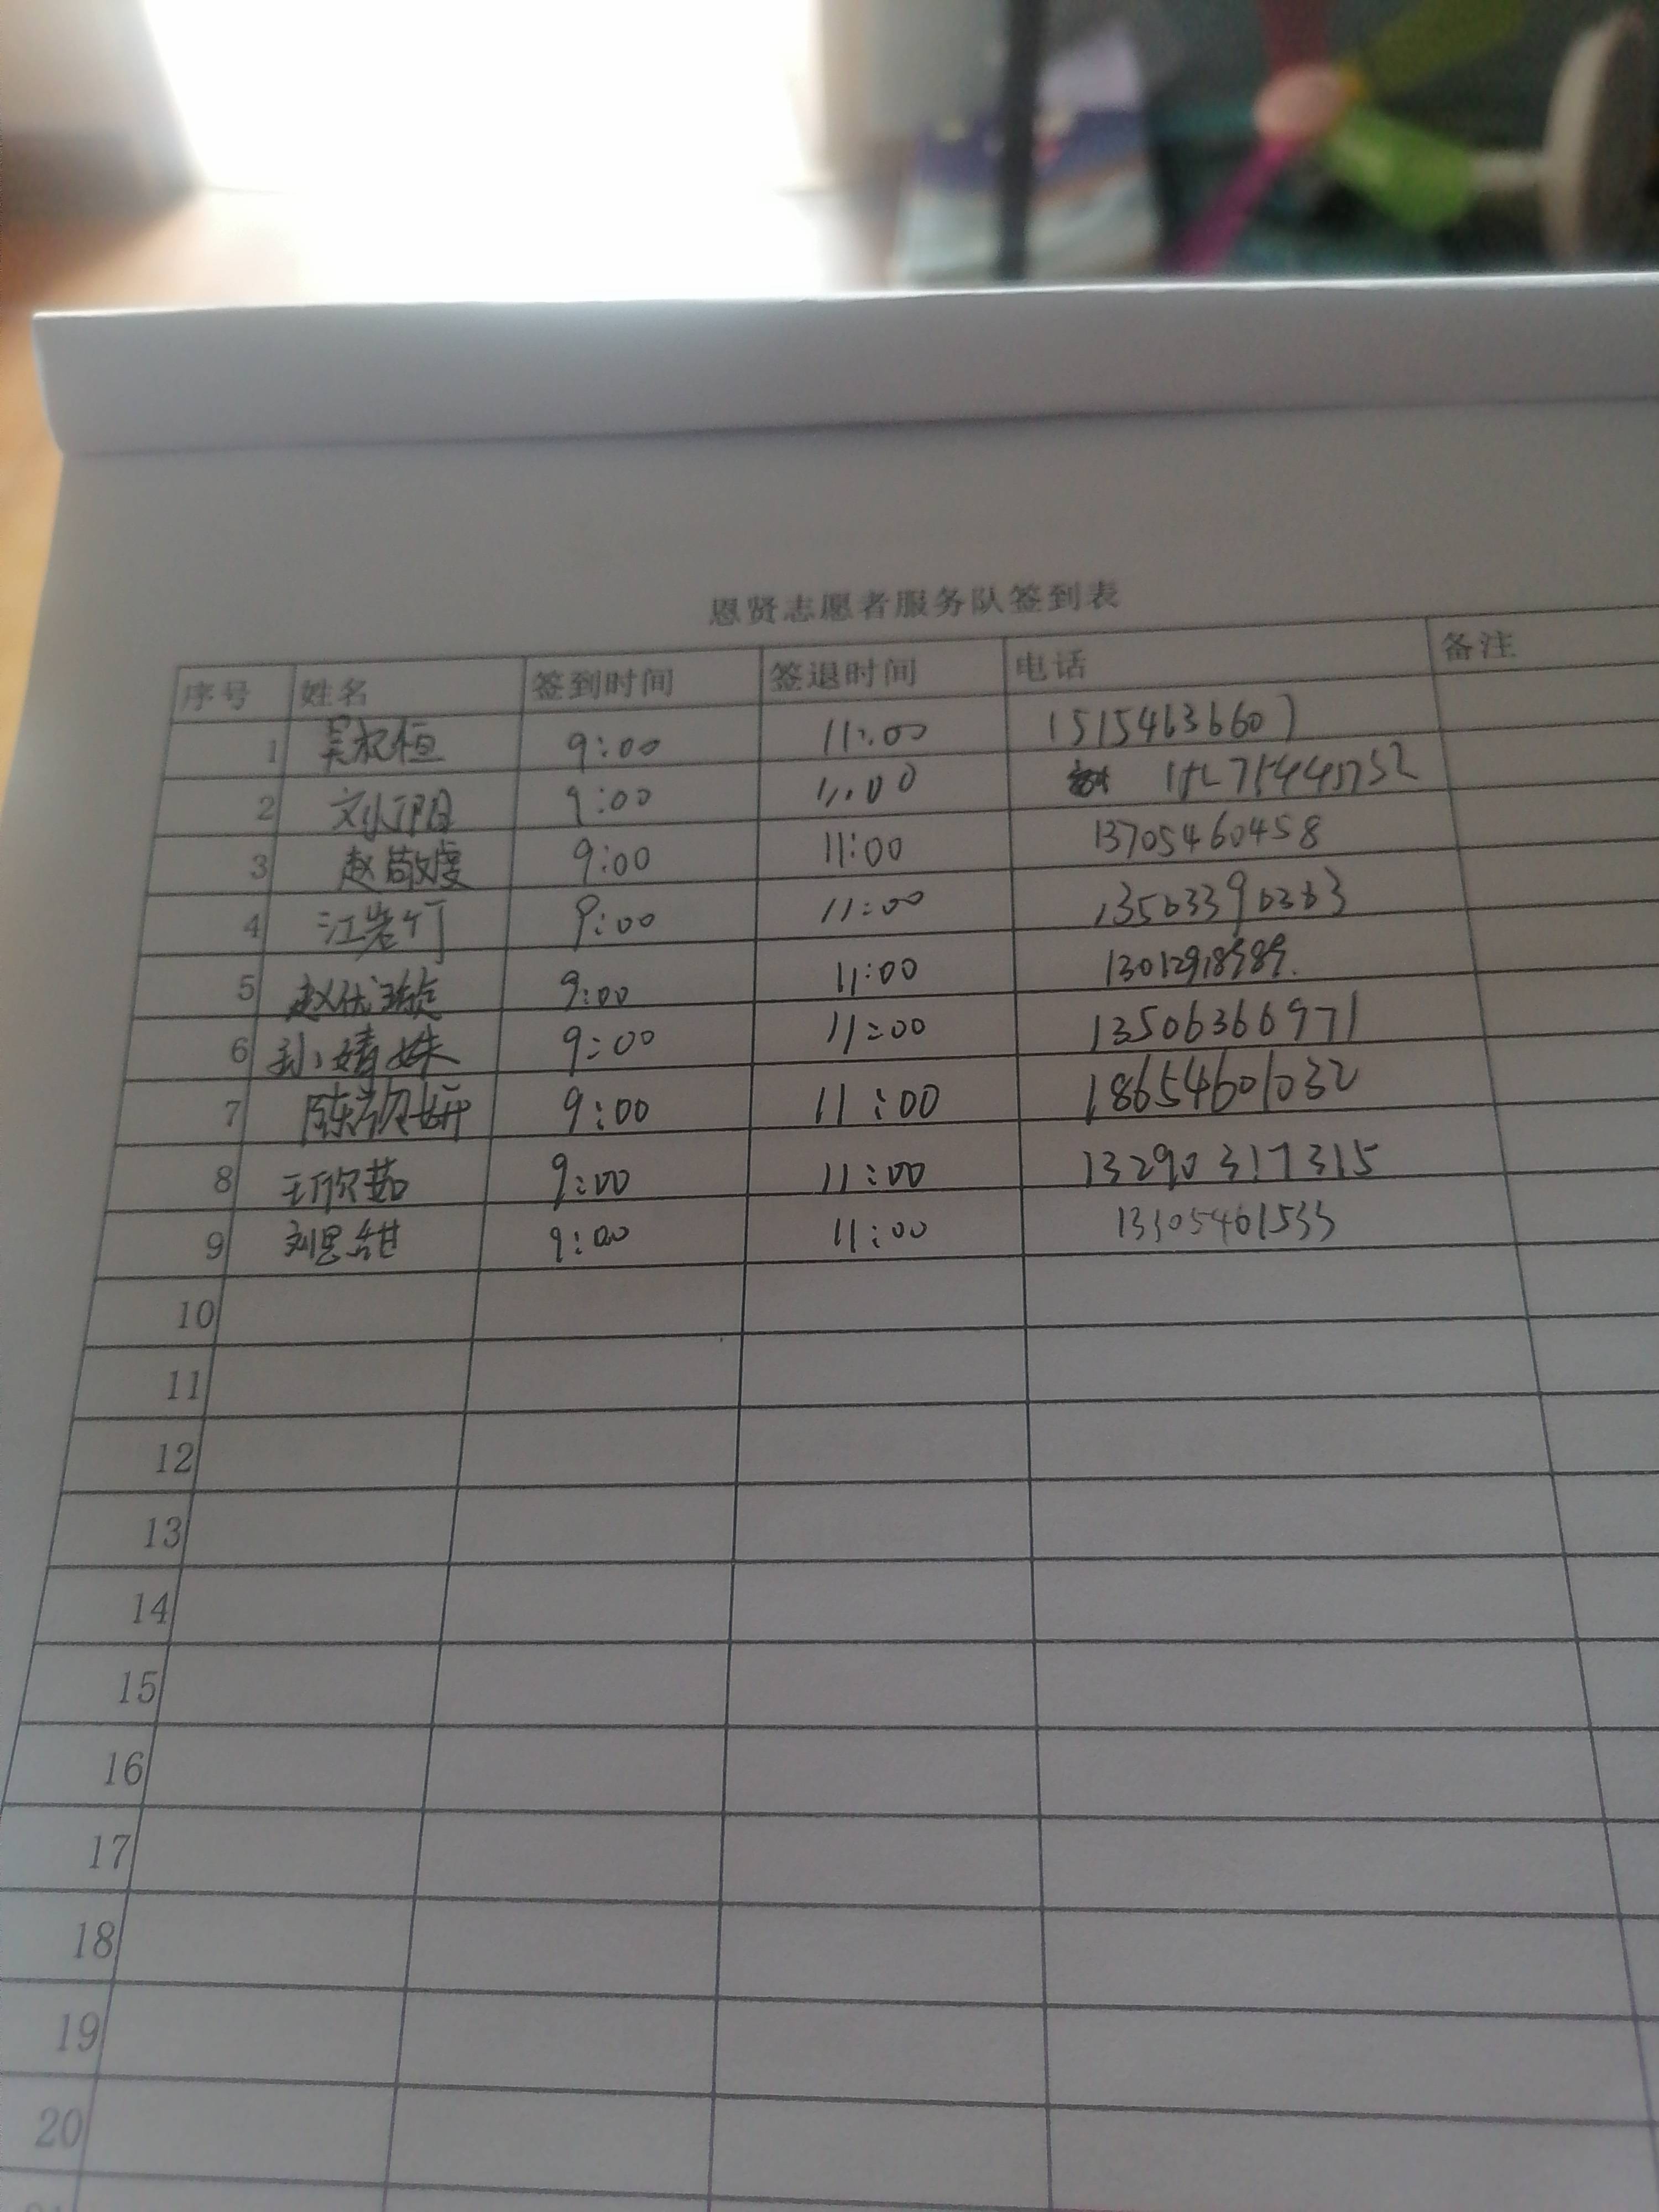 恩贤志愿者服务队签到表
序号 姓名 签到时间 签退时间 电话 备注
1 吴权恒 9:00 11:00 15154636607
2 9:00 11:00
3 赵敬虔 9:00 11:00 13705460458
4 江岩竹 9:00 11:00 13563396363
5 赵优璇 9:00 11:00
6 孙婧姝 9:00 11:00 13506366971
7 陈淑妍 9:00 11:00 18654601032
8 王欣茹 9:00 11:00 13290317315
9 刘思甜 9:00 11:00 13305461533
10
11
12
13
14
15
16
17
18
19
20